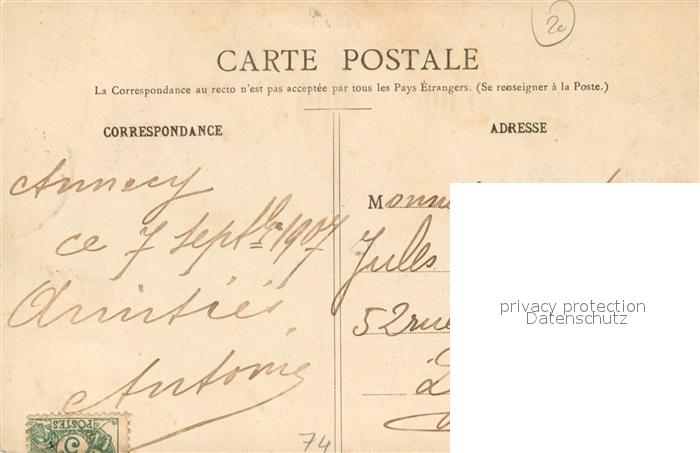 2e
CARTE POSTALE
La Correspondance au recto n'est pas acceptée par tous les Pays Étrangers. (Se renseigner à la Poste.)
CORRESPONDANCE
Annecy
ce 7 Septbre 1907
Amitiés
Antoine
74
ADRESSE
Jules
52 rue
privacy protection
Datenschutz